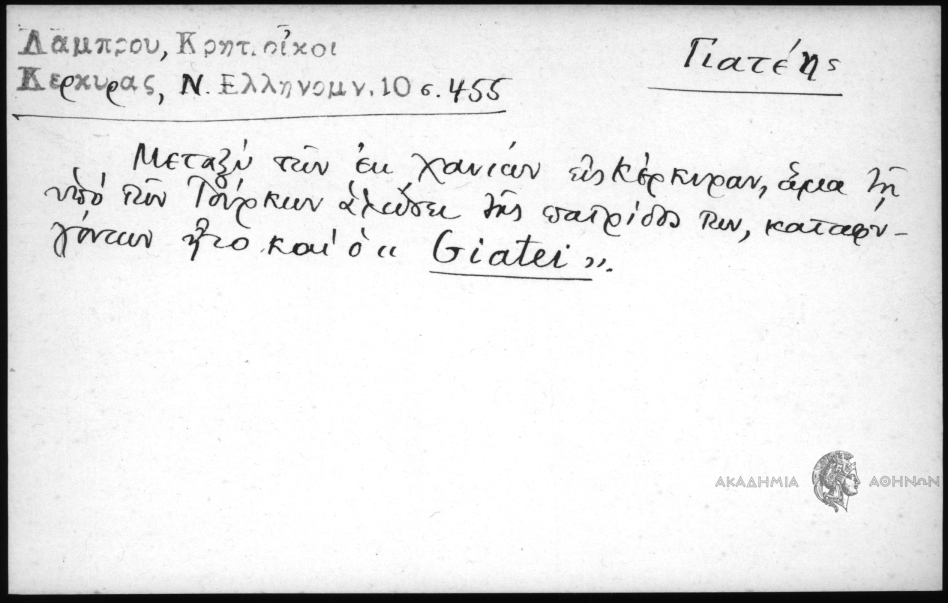 Λάμπρου, Κρητ. οἶκοι
Κερκυρας, Ν. Ελληνομν. 10 σ. 455
Γιατέης
Μεταξύ τῶν ἐκ Χανίων εἰς Κέρκυραν, ἅμα τῇ
ὑπό τῶν Τούρκων ἁλώσει τῆς πατρίδος των, καταφυ-
γόντων ἦτο καί ὁ « Giatei ».
ΑΚΑΔΗΜΙΑ ΑΘΗΝΩΝ